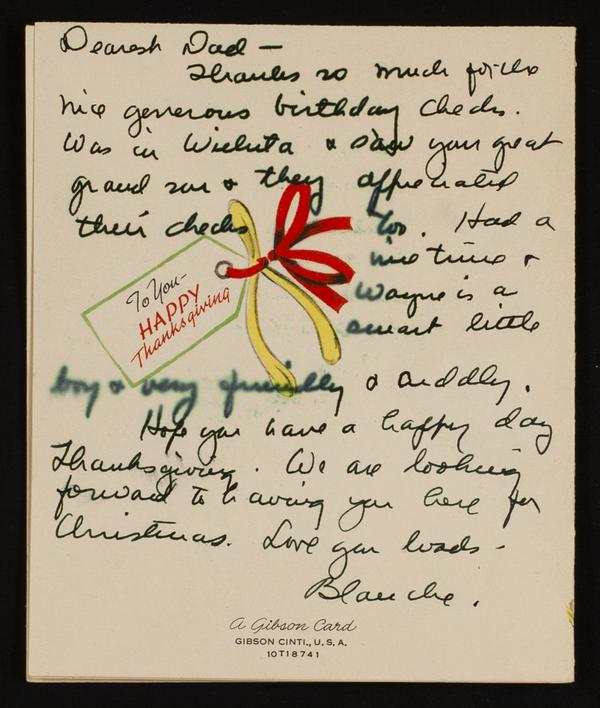 Dearest Dad —
Thanks so much for the
nice generous birthday checks.
Was in Wichita & saw your great
grand son & they appreciated
their checks too. Had a
nice time &
Wayne is a
smart little
To You—
HAPPY
Thanksgiving
boy & very friendly & cuddly.
Hope you have a happy day
Thanksgiving. We are looking
forward to having you here for
Christmas. Love you loads -
Blanche.
A Gibson Card
GIBSON CINTI., U.S.A.
10T18741